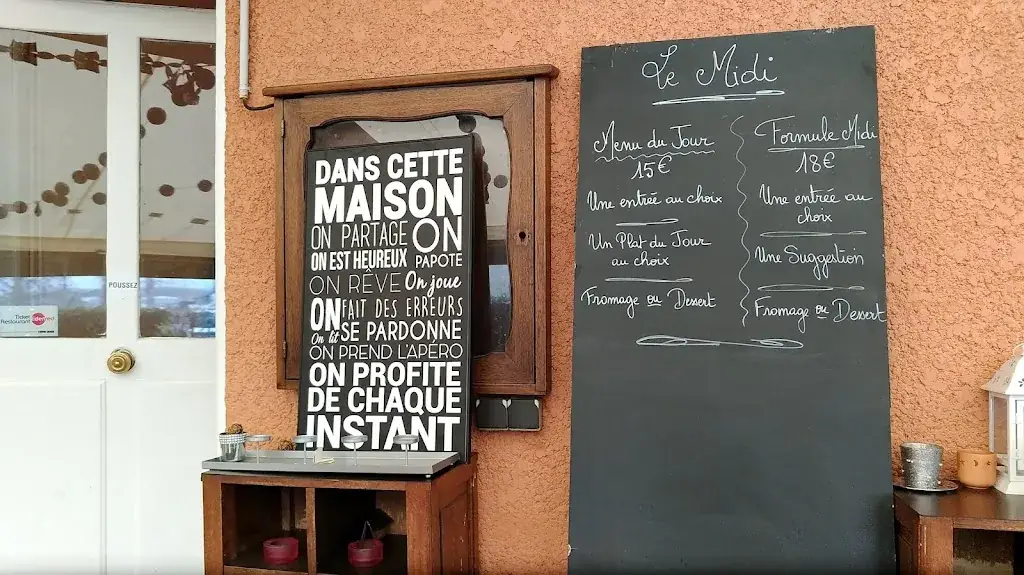 POUSSEZ
Ticket
Restaurant
DANS CETTE
MAISON
ON PARTAGE ON
ON EST HEUREUX PAPOTE
ON RÊVE On joue
ON FAIT DES ERREURS
On lit SE PARDONNE
ON PREND L'APÉRO
ON PROFITE
DE CHAQUE
INSTANT
Le Midi
Menu du Jour
15€
Une entrée au choix
Un Plat du Jour
au choix
Fromage ou Dessert
Formule Midi
18€
Une entrée au
choix
Une Suggestion
Fromage ou Dessert